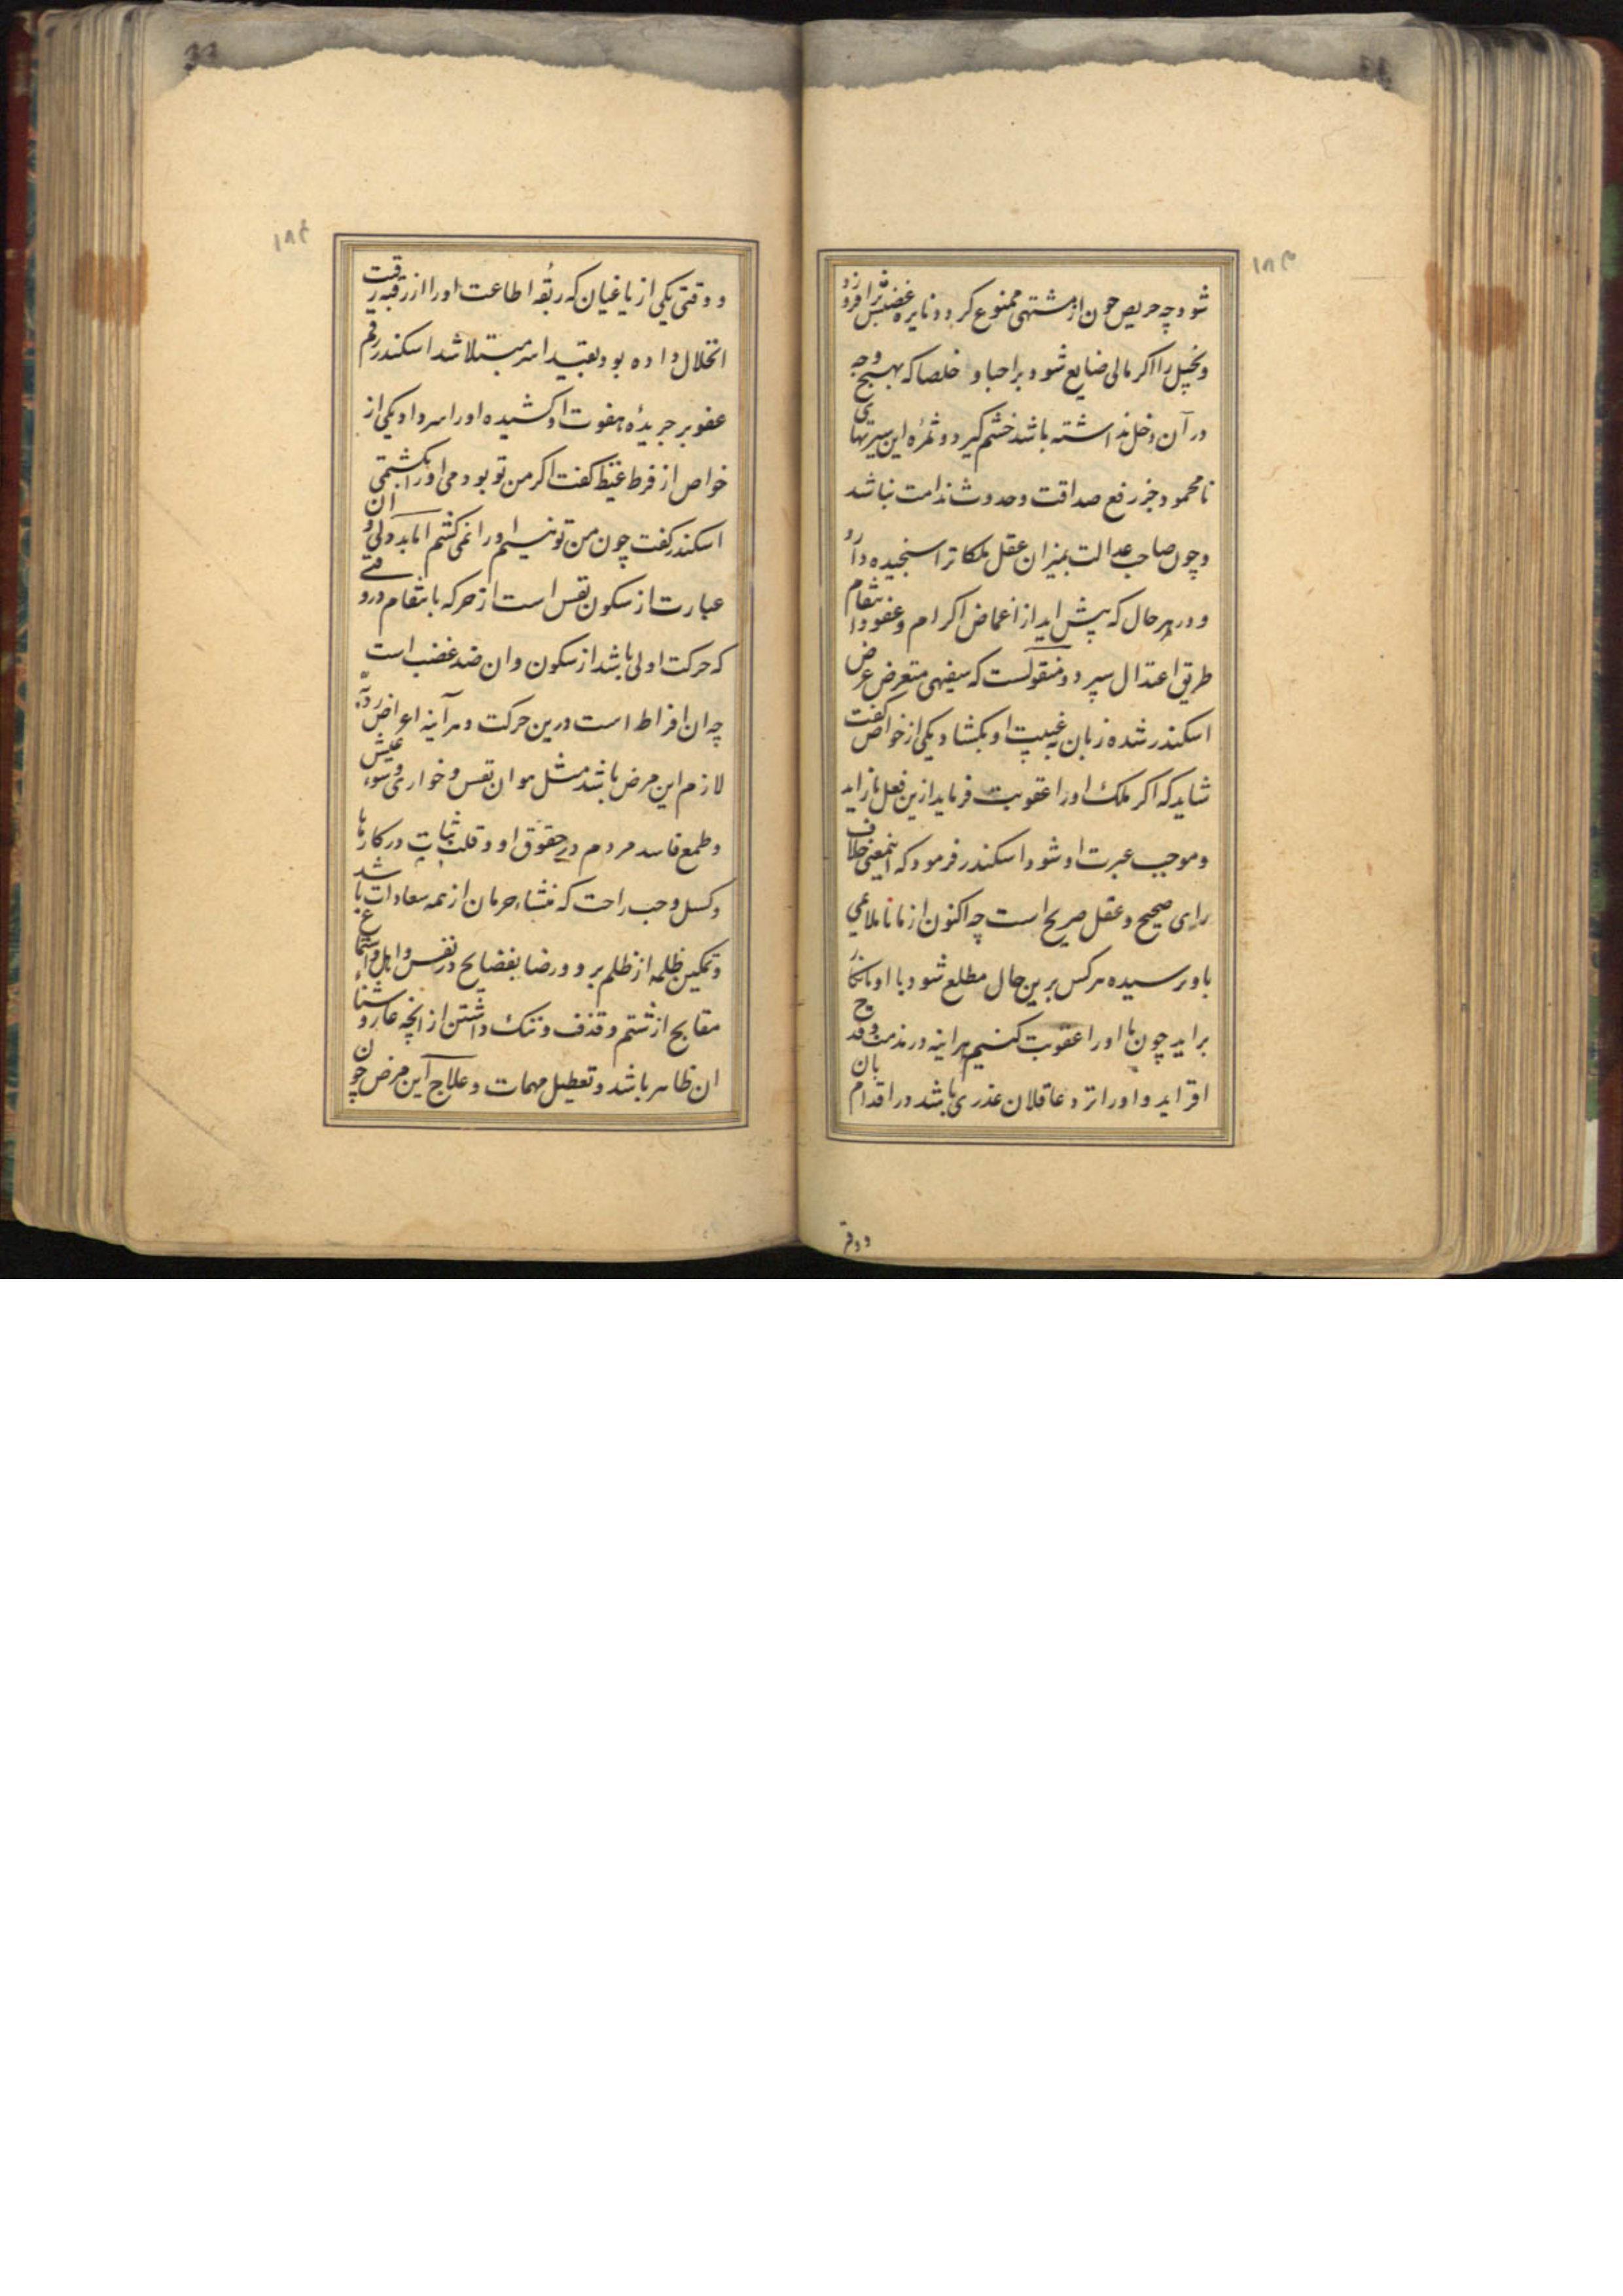 ۱۸۳
شود چه حریص چون از مشتهی ممنوع کردد نایره غضبش برافروزد
و بخیل را اکر مالی ضایع شود بر احبا و خلصا که بهیچ وجه
در آن دخل نداشته باشد خشم کیرد و ثمرهٔ این سیرتهای
نامحمود جز رفع صداقت و حدوث ندامت نباشد
و چون صاحب عدالت بمیزان عقل ملکاترا سنجیده دارد
و در هر حال که پیش اید از اغماض اکرام و عفو و انتقام
طریق اعتدال سپرد و منقولست که سفیهی متعرض عرض
اسکندر شده زبان به غیبت او بکشاد یکی از خواص کفت
شاید که اکر ملک او را عقوبت فرماید ازین فعل باز اید
و موجب عبرت او شود اسکندر فرمود که اینمعنی خلاف
رای صحیح و عقل صریح است چه اکنون از ما ناملایمی
باو نرسیده هر کس برین حال مطلع شود با او بانکار
براید چون ما او را عقوبت کنیم هراینه در مذمت و قدح
افزاید و او را نزد عاقلان عذری باشد در اقدام بان
و وقتی
۱۸۴
و وقتی یکی از یاغیان که ربقه اطاعت او را از رقبه رقیت
انحلال داده بود بقید اسر مبتلا شد اسکندر رقم
عفو بر جریدهٔ هفوت او کشیده او را سر داد یکی از
خواص از فرط غیظ کفت اکر من تو بودمی او را بکشتمی
اسکندر کفت چون من تو نیستم او را نمی کشم اما بددلی و ان
عبارت از سکون نفس است از حرکه بانتقام در وقتی
که حرکت اولی باشد از سکون و ان ضد غضب است
چه ان افراط است درین حرکت و هرآینه اعراض ردیه
لازم این مرض باشد مثل هوان نفس و خواری و سوء عیش
و طمع فاسد مردم در حقوق او و قلت ثبات در کارها
و کسل و حب راحت که منشاء حرمان از همه سعادات باشد
و تمکین ظلمه از ظلم بر و و رضا بفضایح در نفس و اهل و استماع
مقابح از شتم و قذف و ننک داشتن از انچه عار و شناء
ان ظاهر باشد و تعطیل مهمات و علاج این مرض چون